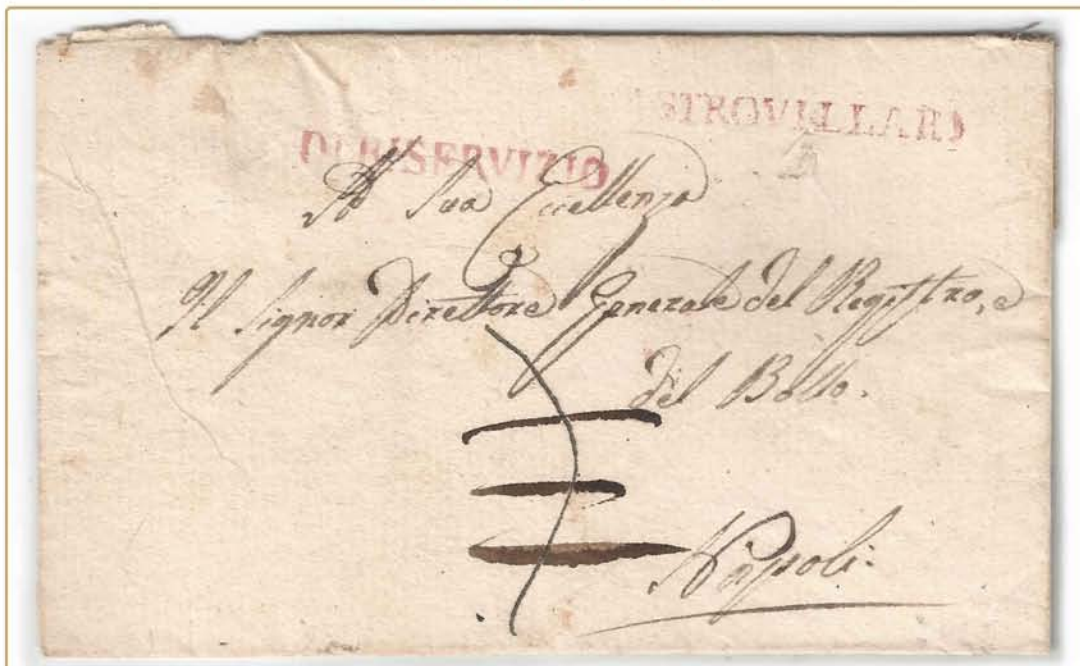 STROVILLARI
DI RL SERVIZIO
A Sua Eccellenza
Il Signor Direttore Generale del Registro, e
del Bollo.
Napoli.